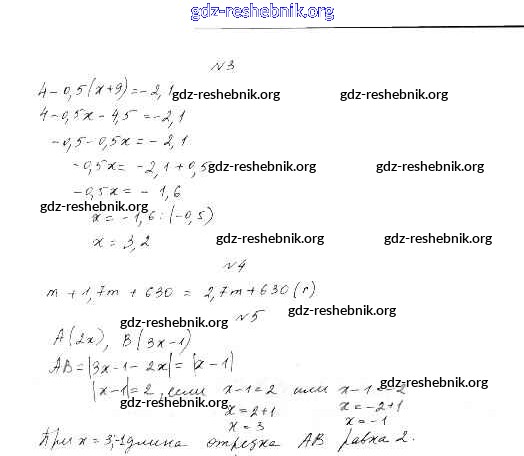 gdz-reshebnik.org
N3
4-0,5(x+9)=-2,1
gdz-reshebnik.org gdz-reshebnik.org
4-0,5x-4,5=-2,1
-0,5-0,5x=-2,1
-0,5x= -2,1+0,5
gdz-reshebnik.org gdz-reshebnik.org
-0,5x= - 1,6
gdz-reshebnik.org
x= -1,6:(-0,5)
x=3,2
gdz-reshebnik.org gdz-reshebnik.org
N4
m+1,7m+630 = 2,7m+630(г)
gdz-reshebnik.org gdz-reshebnik.org
N5
A(2x), B(3x-1)
AB=|3x-1-2x|=|x-1|
gdz-reshebnik.org
|x-1|=2, если x-1=2 или x-1=-2
gdz-reshebnik.org gdz-reshebnik.org
x=2+1 x=-2+1
x=3 x=-1
При x=3;-1 длина отрезка AB равна 2.